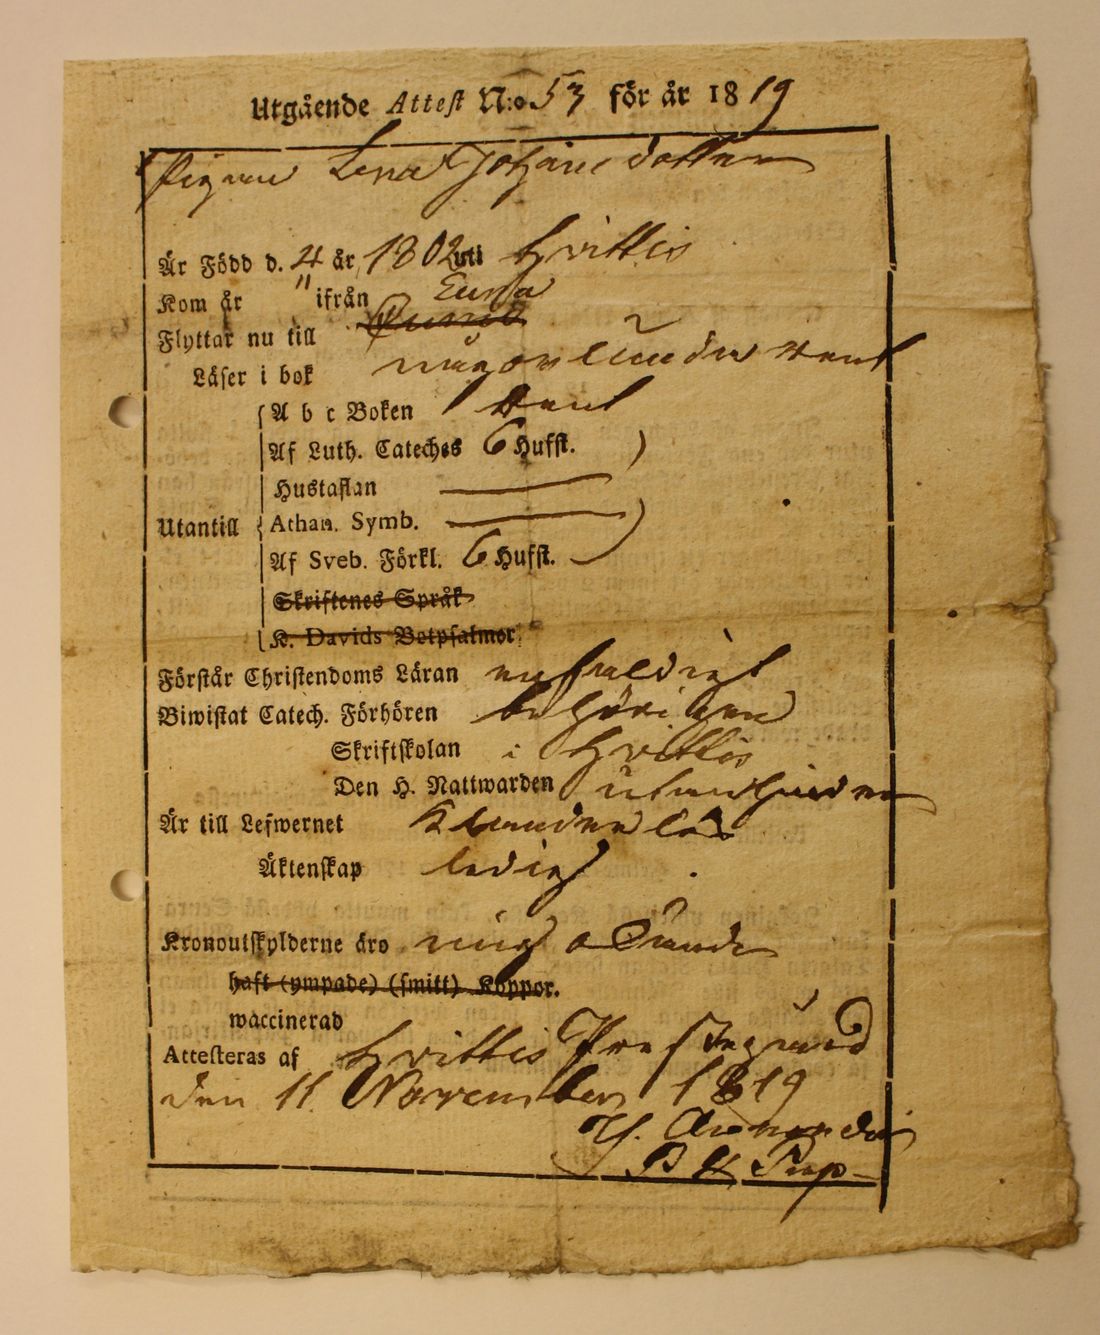 Utgående Attest N:o 53 för år 1819
Pigan Lena Johans dotter
Är Född d. 4 år 1802 uti Hvittis
Kom år " ifrån Eura
Flyttar nu till
Läser i bok någorlunda rent
A b c Boken rent
Af Luth. Cateches 6 Hufst.
Hustaflan
Utantill Athan. Symb.
Af Sveb. Förkl. 6 Hufst.
Skriftenes Språk
K. Davids Botpsalmer
Förstår Christendoms Läran enfaldigt
Biwistat Catech. Förhören behörigen
Skriftskolan i Hvittis
Den H. Nattwarden utan hinder
Är till Lefwernet klanderlös
Äktenskap ledig
Kronoutskylderne äro
haft (ympade) (smitt) Koppor.
waccinerad
Attesteras af Hvittis Prestegård
den 11 November 1819